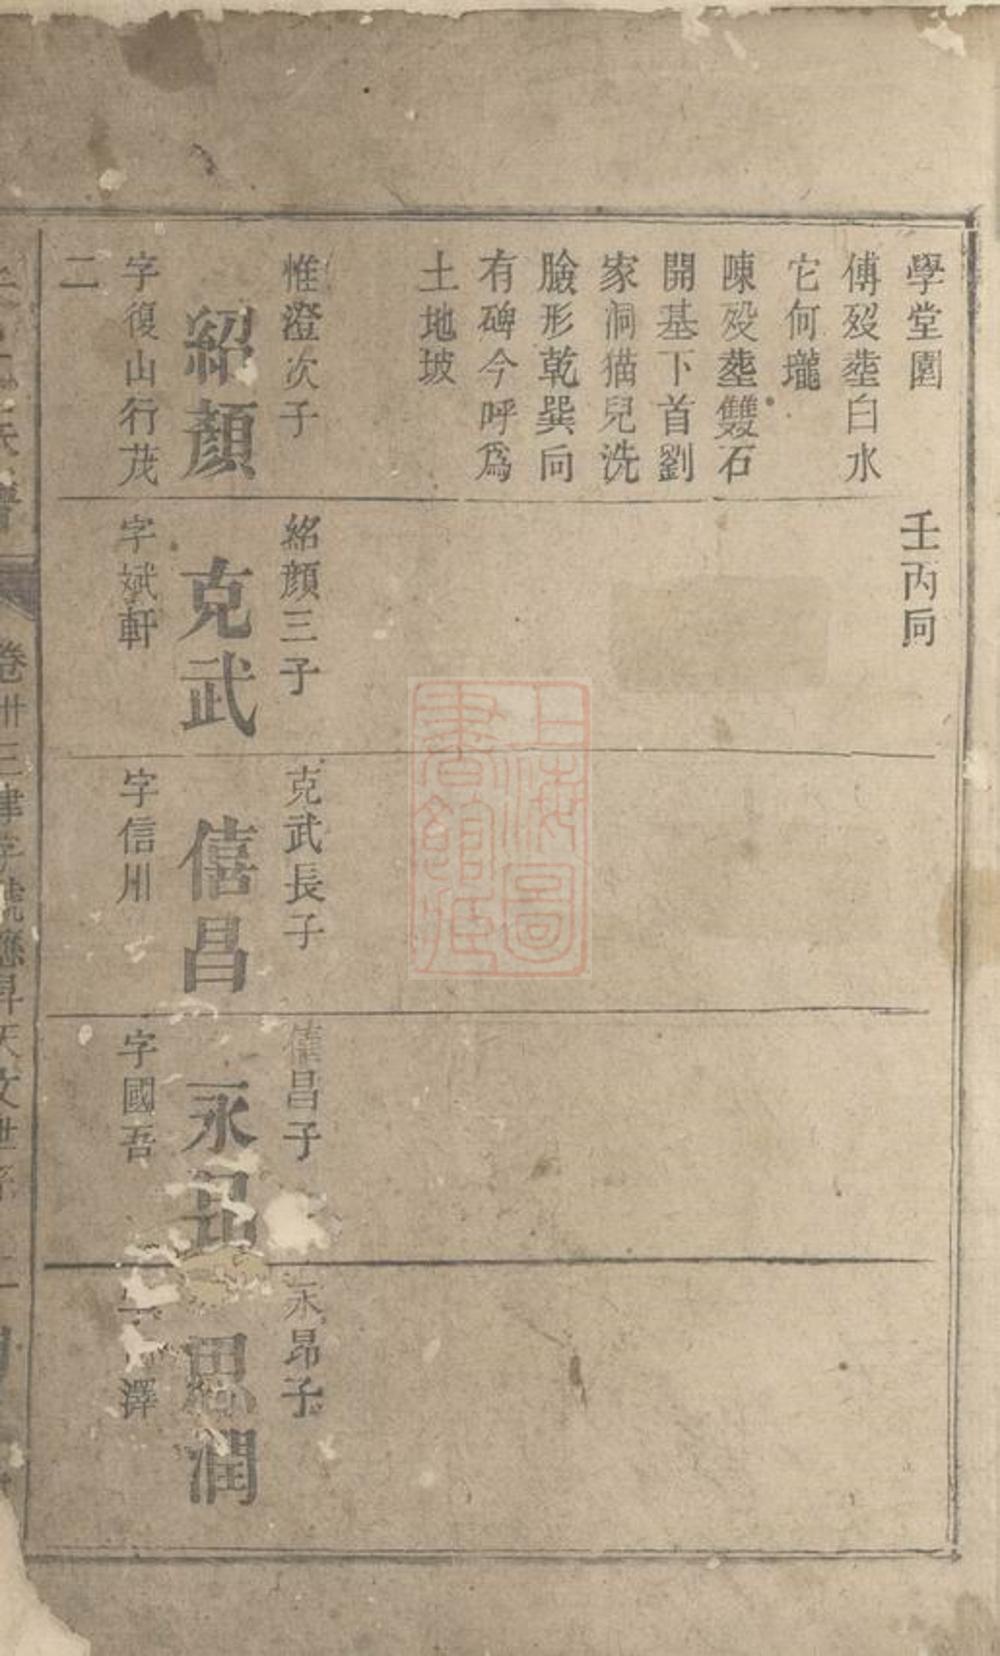 學堂園
傅歿塟白水
它何壠
陳歿塟雙石
開基下首劉
家洞猫兒洗
臉形乾巽向
有碑今呼爲
土地坡
惟澄次子
紹顏
字復山行茂
二
壬丙向
紹顏三子
克武
字斌軒
克武長子
僖昌
字信川
僖昌子
永昂
字國吾
永昂子
思潤
澤
上海圖
書館藏